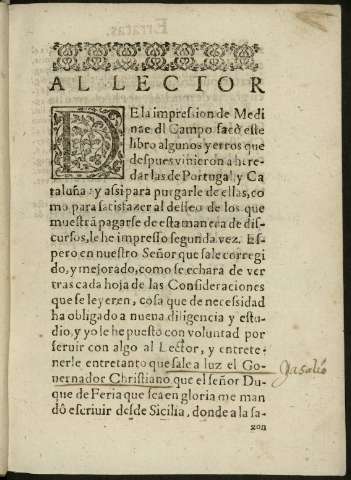 AL LECTOR
DE la impression de Medi
na del Campo sacò este
libro algunos yerros que
despues vinieron a here-
dar las de Portugal, y Ca
taluña: y assi para purgarle de ellas, co
mo para satisfazer al desseo de los que
muestrã pagarse de esta manera de dis-
cursos, le he impresso segunda vez. Es-
pero en nuestro Señor que sale corregi
do, y mejorado, como se echara de ver
tras cada hoja de las Consideraciones
que se leyeren, cosa que de necessidad
ha obligado a nueua diligencia y estu-
dio, y yo le he puesto con voluntad por
seruir con algo al Lector, y entrete-
nerle entretanto que sale a luz el Go-
uernador Christiano que el señor Du-
que de Feria que sea en gloria me man
dò escriuir desde Sicilia, donde a la sa-
zon
Ya salió
Erratas.